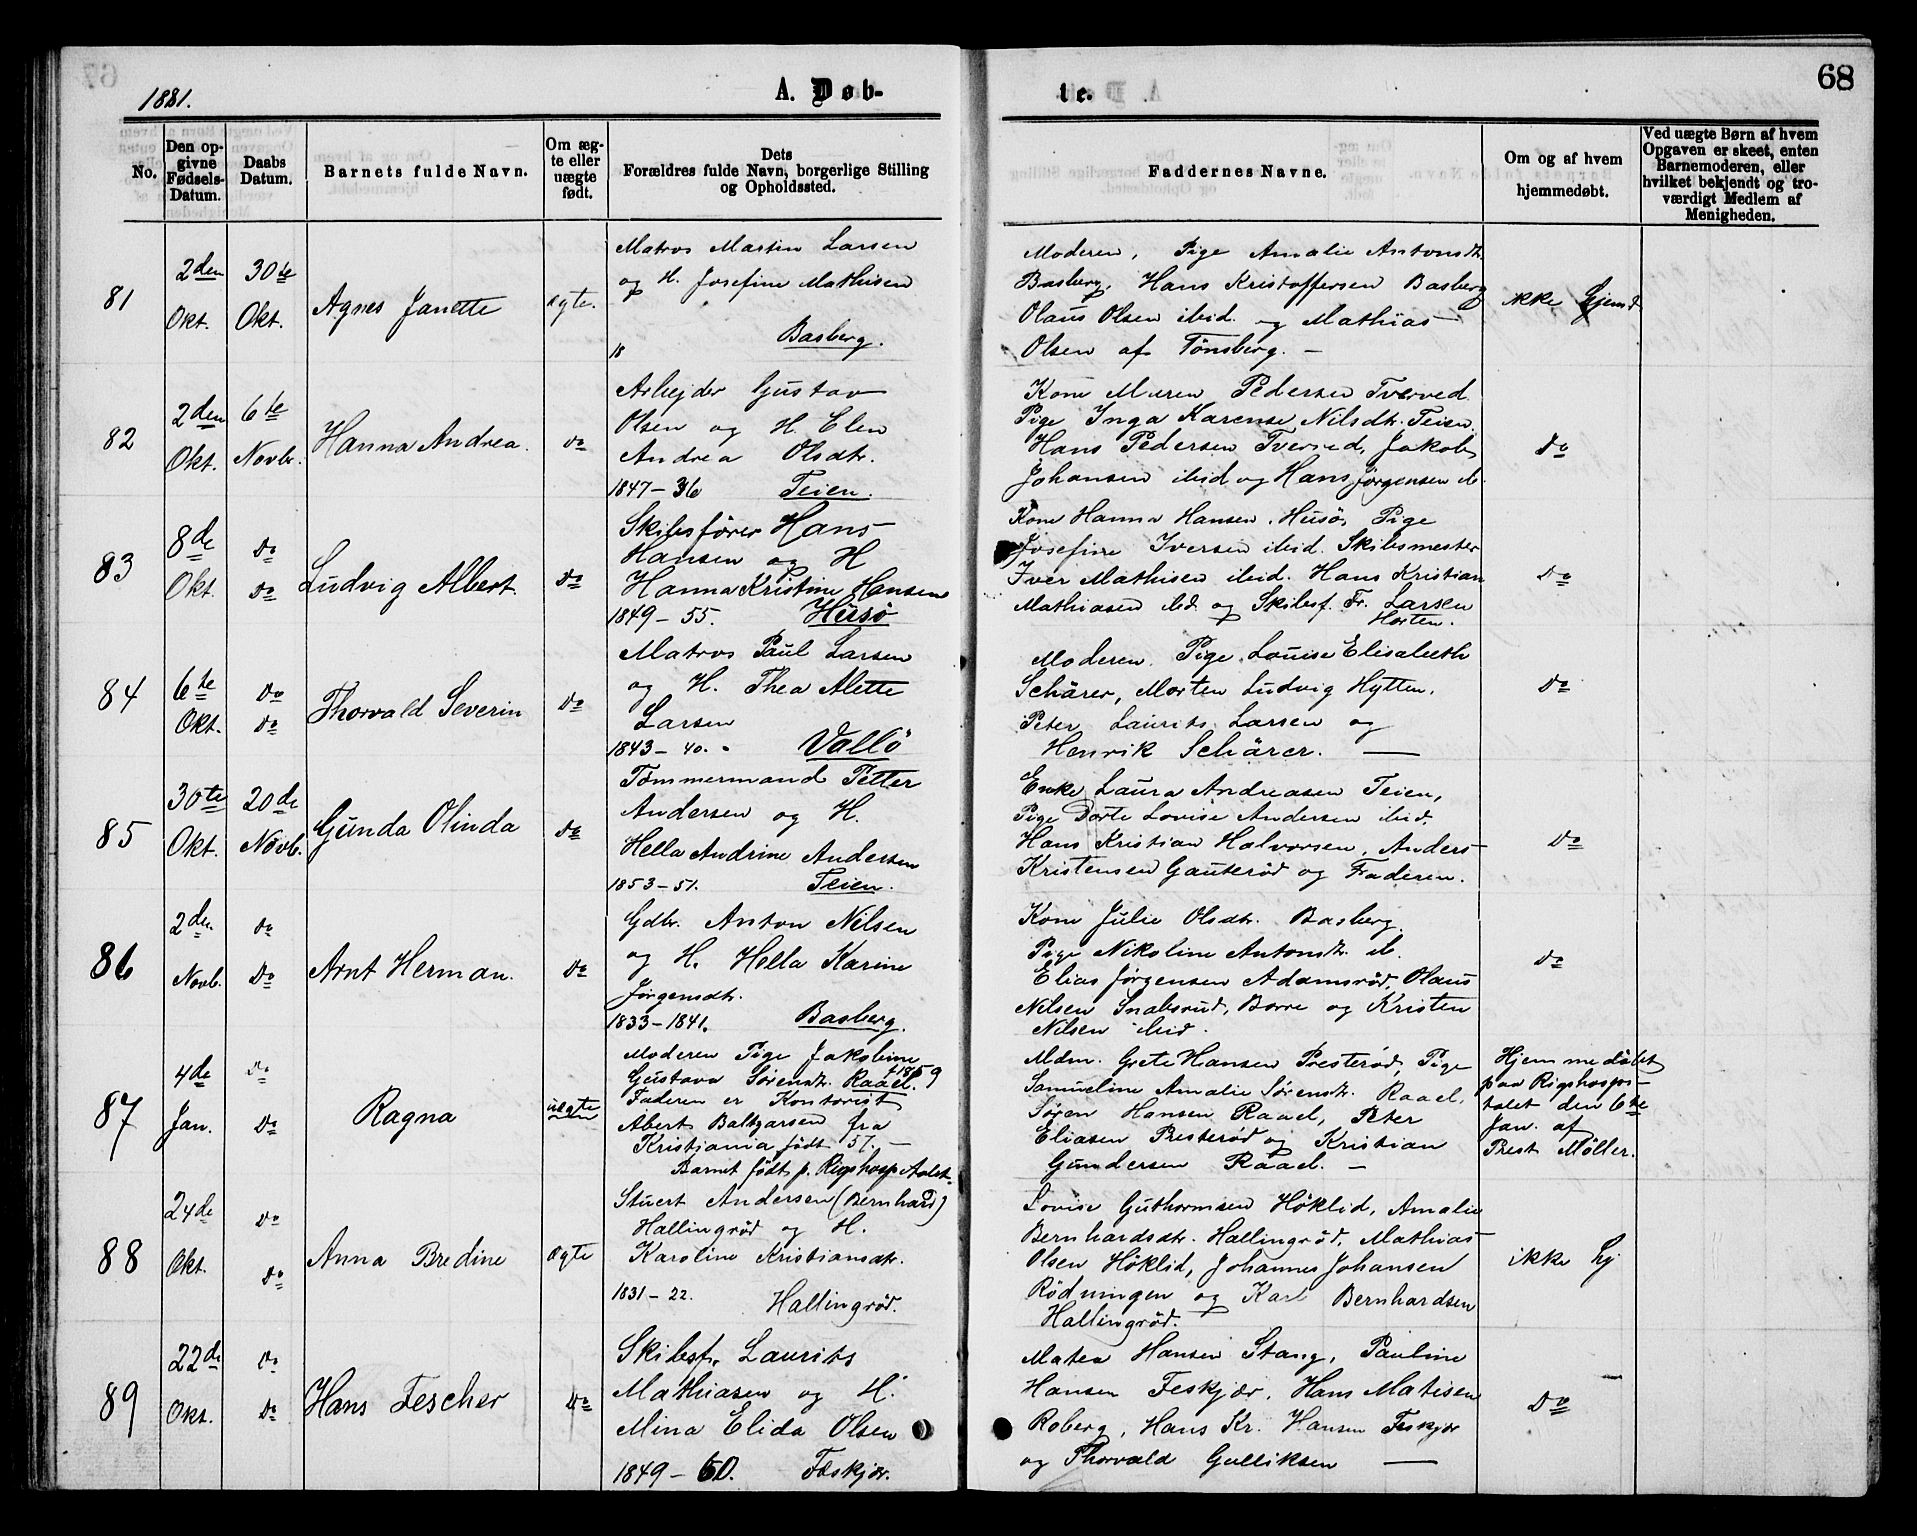 1881.
A. Døb-
te.
68
No.
Den op-
givne
Fødsels-
Datum.
Daabs
Datum.
Barnets fulde Navn.
Om æg-
te eller
uægte
født.
Dets
Forældres fulde Navn, borgerlige Stilling
og Opholdssted.
Faddernes Navne.
Om og af hvem
hjemmedøbt.
Ved uægte Børn af hvem
Opgaven er skeet, enten
Barnemoderen, eller
hvilket bekjendt og tro-
værdigt Medlem af
Menigheden.
81
2den
Okt.
30te
Okt.
Agnes Janette
ægte.
Matros Martin Larsen
og H. Josefine Mathisen
18 Basberg.
Moderen, Pige Amalie Antonsdt.
Basberg, Hans Kristoffersen Basberg
Olaus Olsen ibid. og Mathias
Olsen af Tönsberg. —
ikke hjemd.
82
2den
Okt.
6te
Novbr.
Hanna Andrea.
do
Arbejder Gustav
Olsen og H. Elen
Andrea Olsdtr.
1847 - 36 Teien.
Kone Maren Pedersen Tverved.
Pige Inga Karense Nilsdtr. Teien.
Hans Pedersen Tverved, Jakob
Johansen ibid og Hans Jörgensen ib.
do
83
8de
Okt.
do
do
Ludvig Albert.
do
Skibsförer Hans
Hansen og H
Hanna Kristine Hansen
1849 - 55. Husö
Kone Hanna Hansen, Husö, Pige
Josefine Iversen ibid. Skibsmester
Iver Mathisen ibid. Hans Kristian
Mathiasen ibd. og Skibsf. Fr. Larsen
Horten.
do
84
6te
Okt.
do
do
Thorvald Severin
do
Matros Paul Larsen
og H. Thea Alette
Larsen
1843 - 40. Vallö
Moderen. Pige Louise Elisabeth
Schärer, Morten Ludvig Hytten,
Peter Laurits Larsen og
Henrik Schärer. —
do
85
30te
Okt.
20de
Novb.
Gunda Olinda
do
Tømmermand Petter
Andersen og H.
Hella Andrine Andersen
1853 - 51. Teien.
Enke Laura Andreasen Teien,
Pige Dorte Lovise Andersen ibid.
Hans Kristian Halvorsen, Anders
Kristensen Gauteröd og Faderen.
do
86
2den
Novb.
do
do
Arnt Herman.
do
Gdbr. Anton Nilsen
og H. Hella Karine
Jörgensdtr.
1833 - 1841. Basberg.
Kone Julie Olsdtr. Basberg.
Pige Nikoline Antonsdtr. ib.
Elias Jörgensen Adamsröd, Olaus
Nilsen Snabsrud, Borre og Kristen
Nilsen ibid.
do
87
4de
Jan.
do
do
Ragna
uægte
Moderen Pige Jakobine
Gustava Sörensdtr. Raael. f 1859
Faderen er Kontorist
Abert Baltzarsen fra
Kristiania født 57. —
Barnet födt p. Rigshosp
Mdm. Grete Hansen Presteröd, Pige
Samueline Amalie Sörensdtr. Raael,
Sören Hansen Raael, Peter
Eliasen Presteröd og Kristian
Gundersen Raael. —
Hjemmedöbt
paa Rigshospi-
talet den 6te
Jan. af
Prest Möller.
88
24de
Okt.
do
do
Anna Bredine
ægte
Stuert Andersen (Bernhard)
Hallingröd og H.
Karoline Kristiansdtr.
1831 - 22. Hallingröd.
Lovise Guthormsen Höklid, Amalie
Bernhardsdtr. Hallingröd, Mathias
Olsen Höklid, Johannes Johansen
Rödningen og Karl Bernhardsen
Hallingröd.
ikke hj
89
22de
Okt.
do
do
Hans Fescher
do
Skibsf. Laurits
Mathiasen og H.
Mina Elida Olsen
1849 - 60. Feskjær.
Matea Hansen Stang, Pauline
Hansen Feskjær, Hans Matisen
Roberg, Hans Kr. Hansen Feskjær
og Thorvald Gulliksen —
do